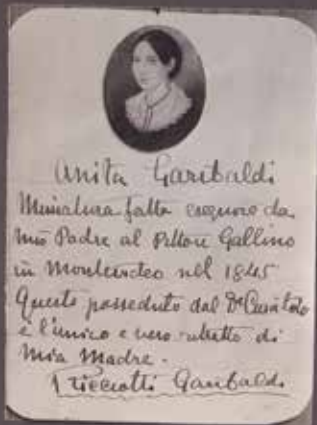 Anita Garibaldi
Miniatura fatta eseguire da
mio Padre al Pittore Gallino
in Montevideo nel 1845
Questo posseduto dal Dr
è l'unico e vero ritratto di
mia Madre.
Ricciotti Garibaldi